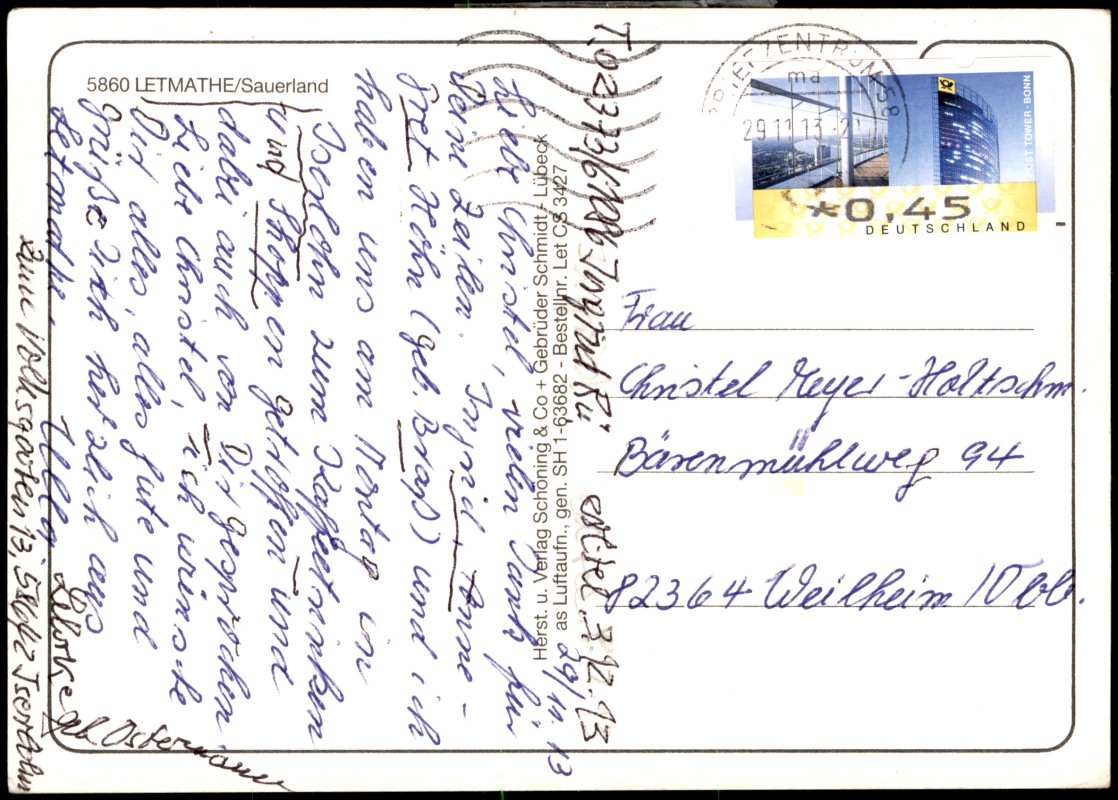 5860 LETMATHE/Sauerland
29/11.13
Liebe Christel, vielen Dank für
Deine Zeilen. Ingrid + Anne-
gret Höhn (geb. Brass) und ich
haben uns am Montag in
Iserlohn zum Kaffeetrinken
und Shoppen getroffen und
dabei auch von Dir gesprochen.
Liebe Christel, ich wünsche
Dir alles, alles gute und
grüße Dich herzlich aus
Letmathe,
Ulla
geb. Ostermann
Zum Volksgarten 13, 58642 Iserlohn
Herst. u. Verlag Schöning & Co + Gebrüder Schmidt - Lübeck
as Luftaufn., gen. SH 1-63682 - Bestellnr. Let CS 3427
Ingrid
3.12.13
BRIEFZENTRUM 58
md
29.11.13-21
POST TOWER · BONN
*0,45
DEUTSCHLAND
Frau
Christel Meyer-Holtschm.
Bärenmühlweg 94
82364 Weilheim/Obb.